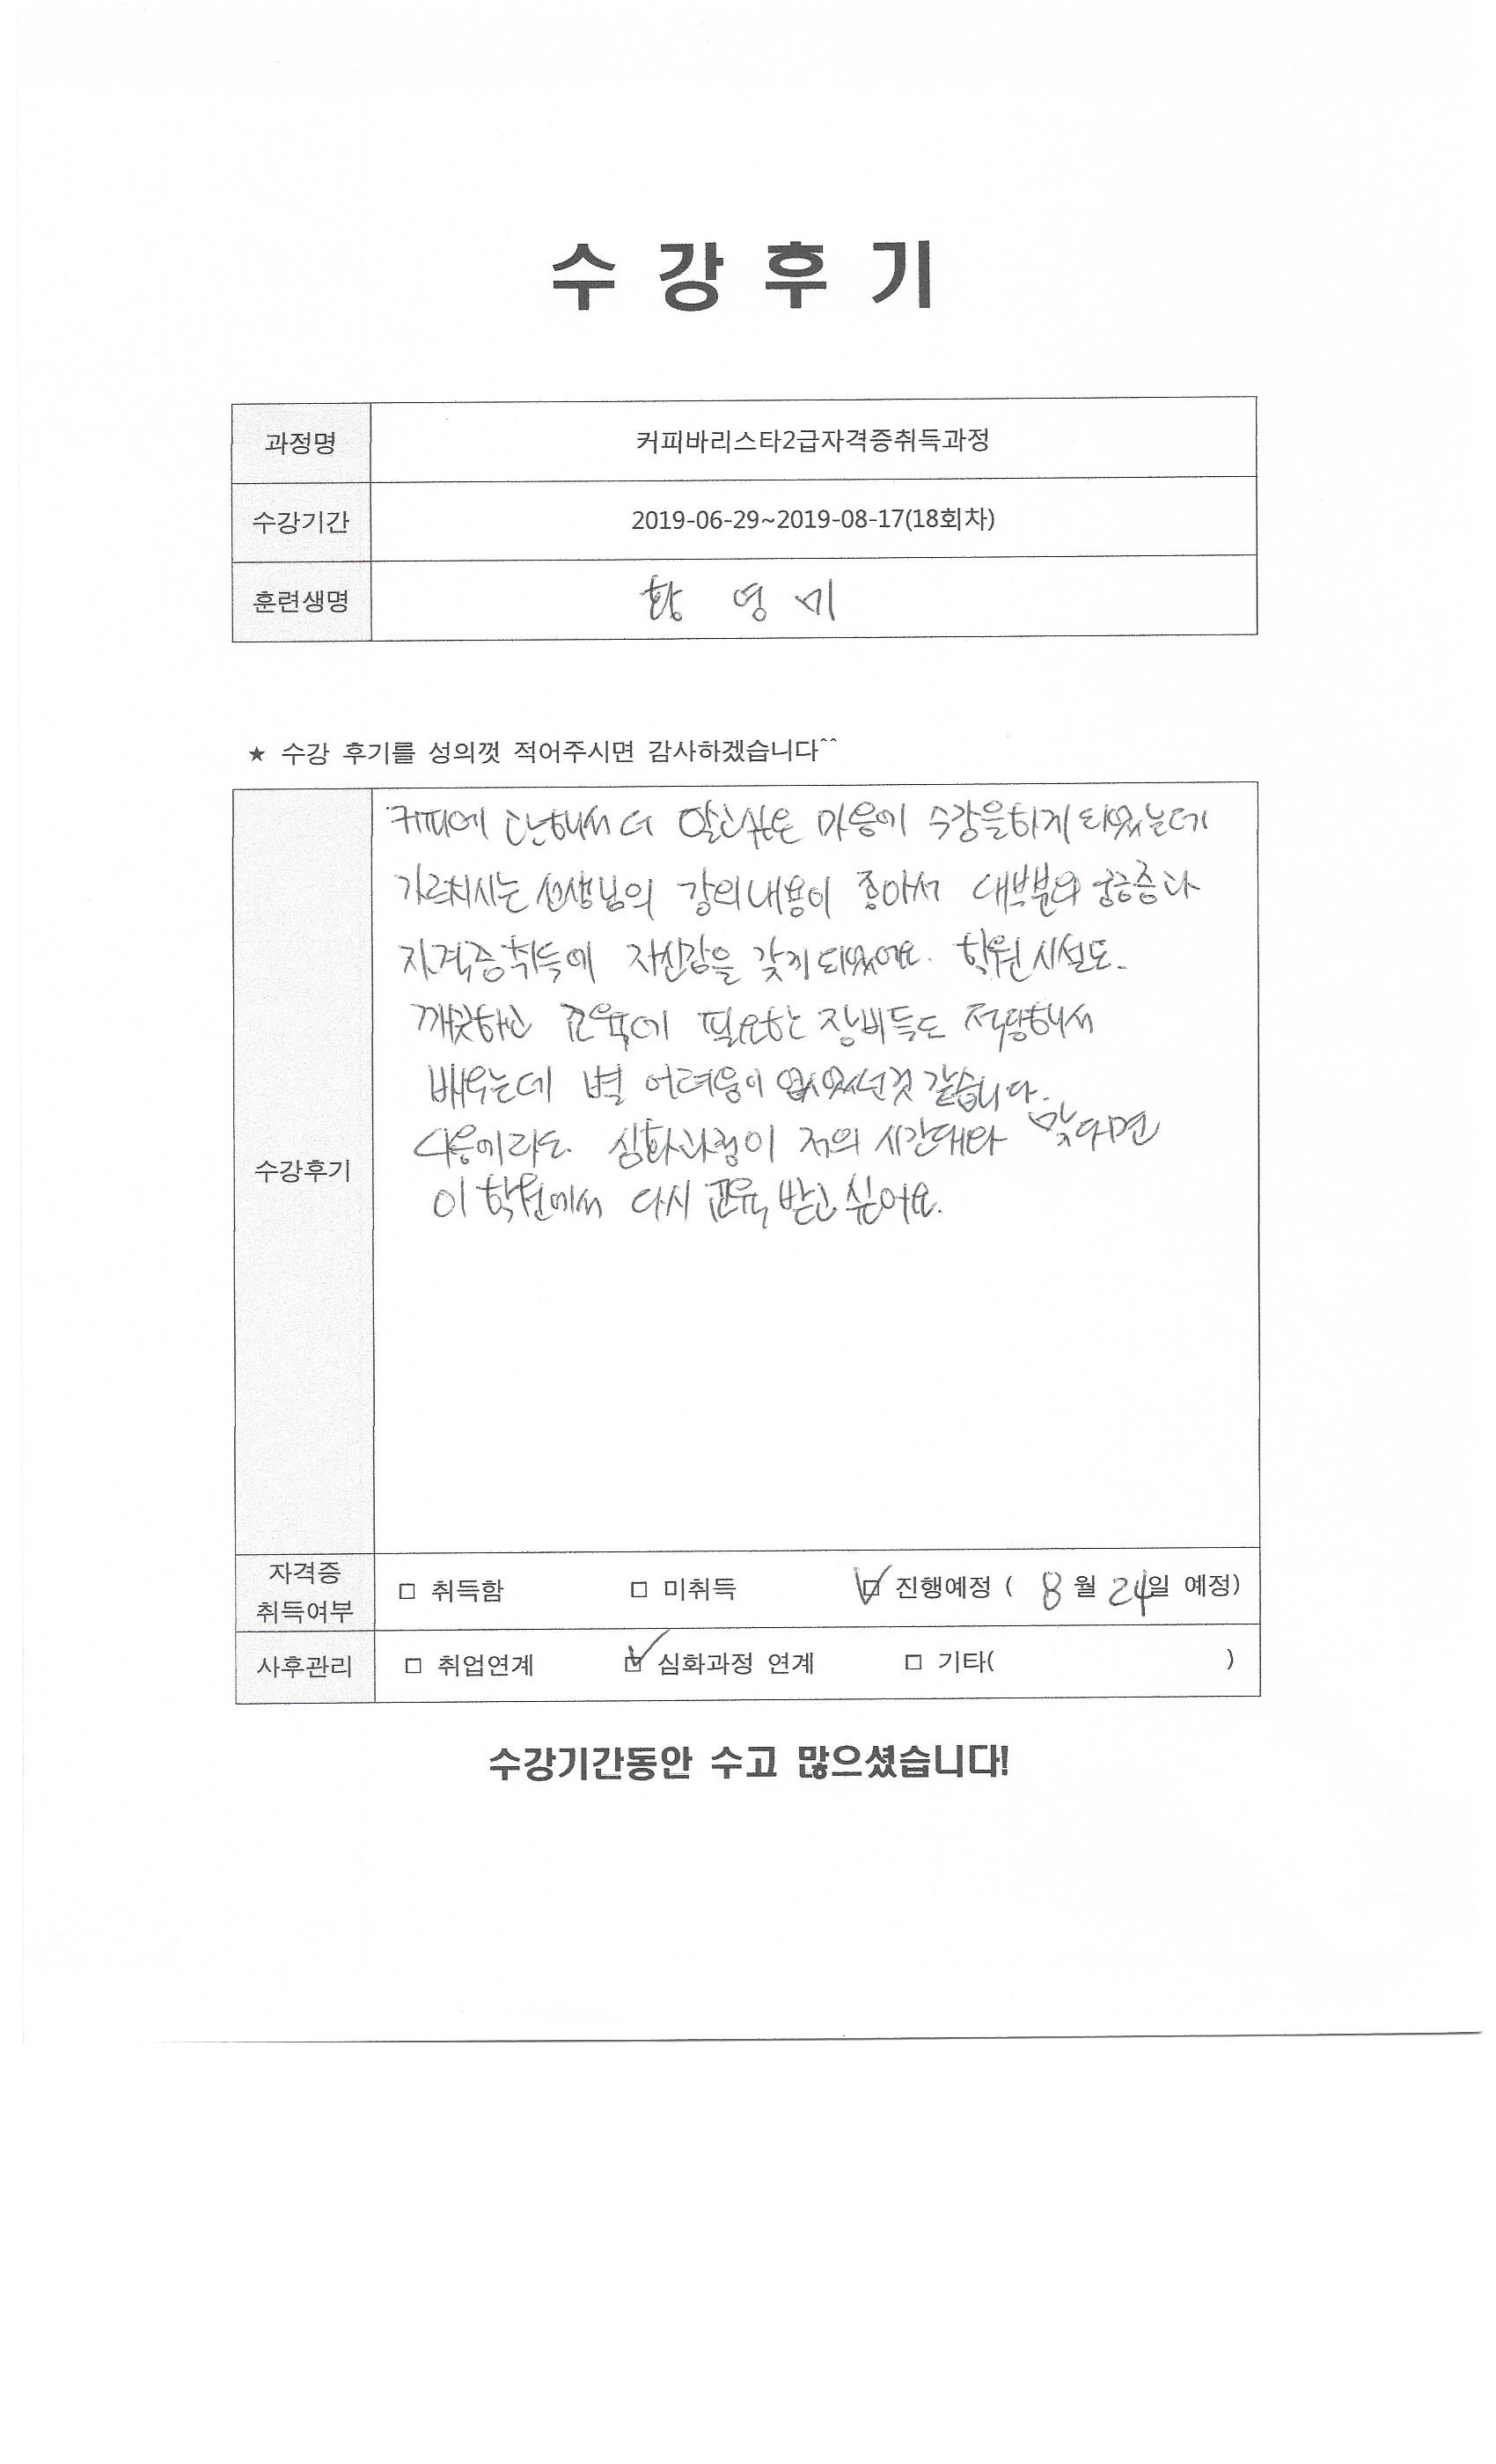 수 강 후 기
과정명 커피바리스타2급자격증취득과정
수강기간 2019-06-29~2019-08-17(18회차)
훈련생명 황 영 미
★ 수강 후기를 성의껏 적어주시면 감사하겠습니다^^
수강후기
커피에 관해서 더 알고싶은 마음에 수강을하게 되었는데
가르치시는 선생님의 강의내용이 좋아서 대부분의 궁금증과
자격증취득에 자신감을 갖게 되었어요. 학원시설도
깨끗하고 교육에 필요한 장비들도 적당해서
배우는데 별 어려움이 없었던것 같습니다.
다음이라도 심화과정이 저의 시간대와 맞다면
이 학원에서 다시 교육 받고 싶어요.
자격증
취득여부 □ 취득함 □ 미취득 ☑ 진행예정 ( 8월 24일 예정)
사후관리 □ 취업연계 ☑ 심화과정 연계 □ 기타( )
수강기간동안 수고 많으셨습니다!